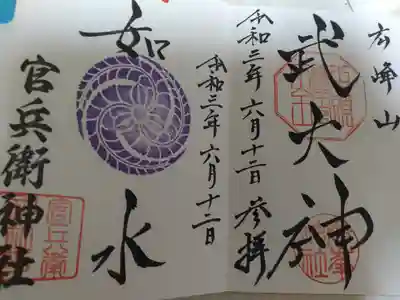 広峰山
武大神
令和三年六月十二日参拝
令和三年六月十二日
如水
官兵衛神社
官兵衛神社